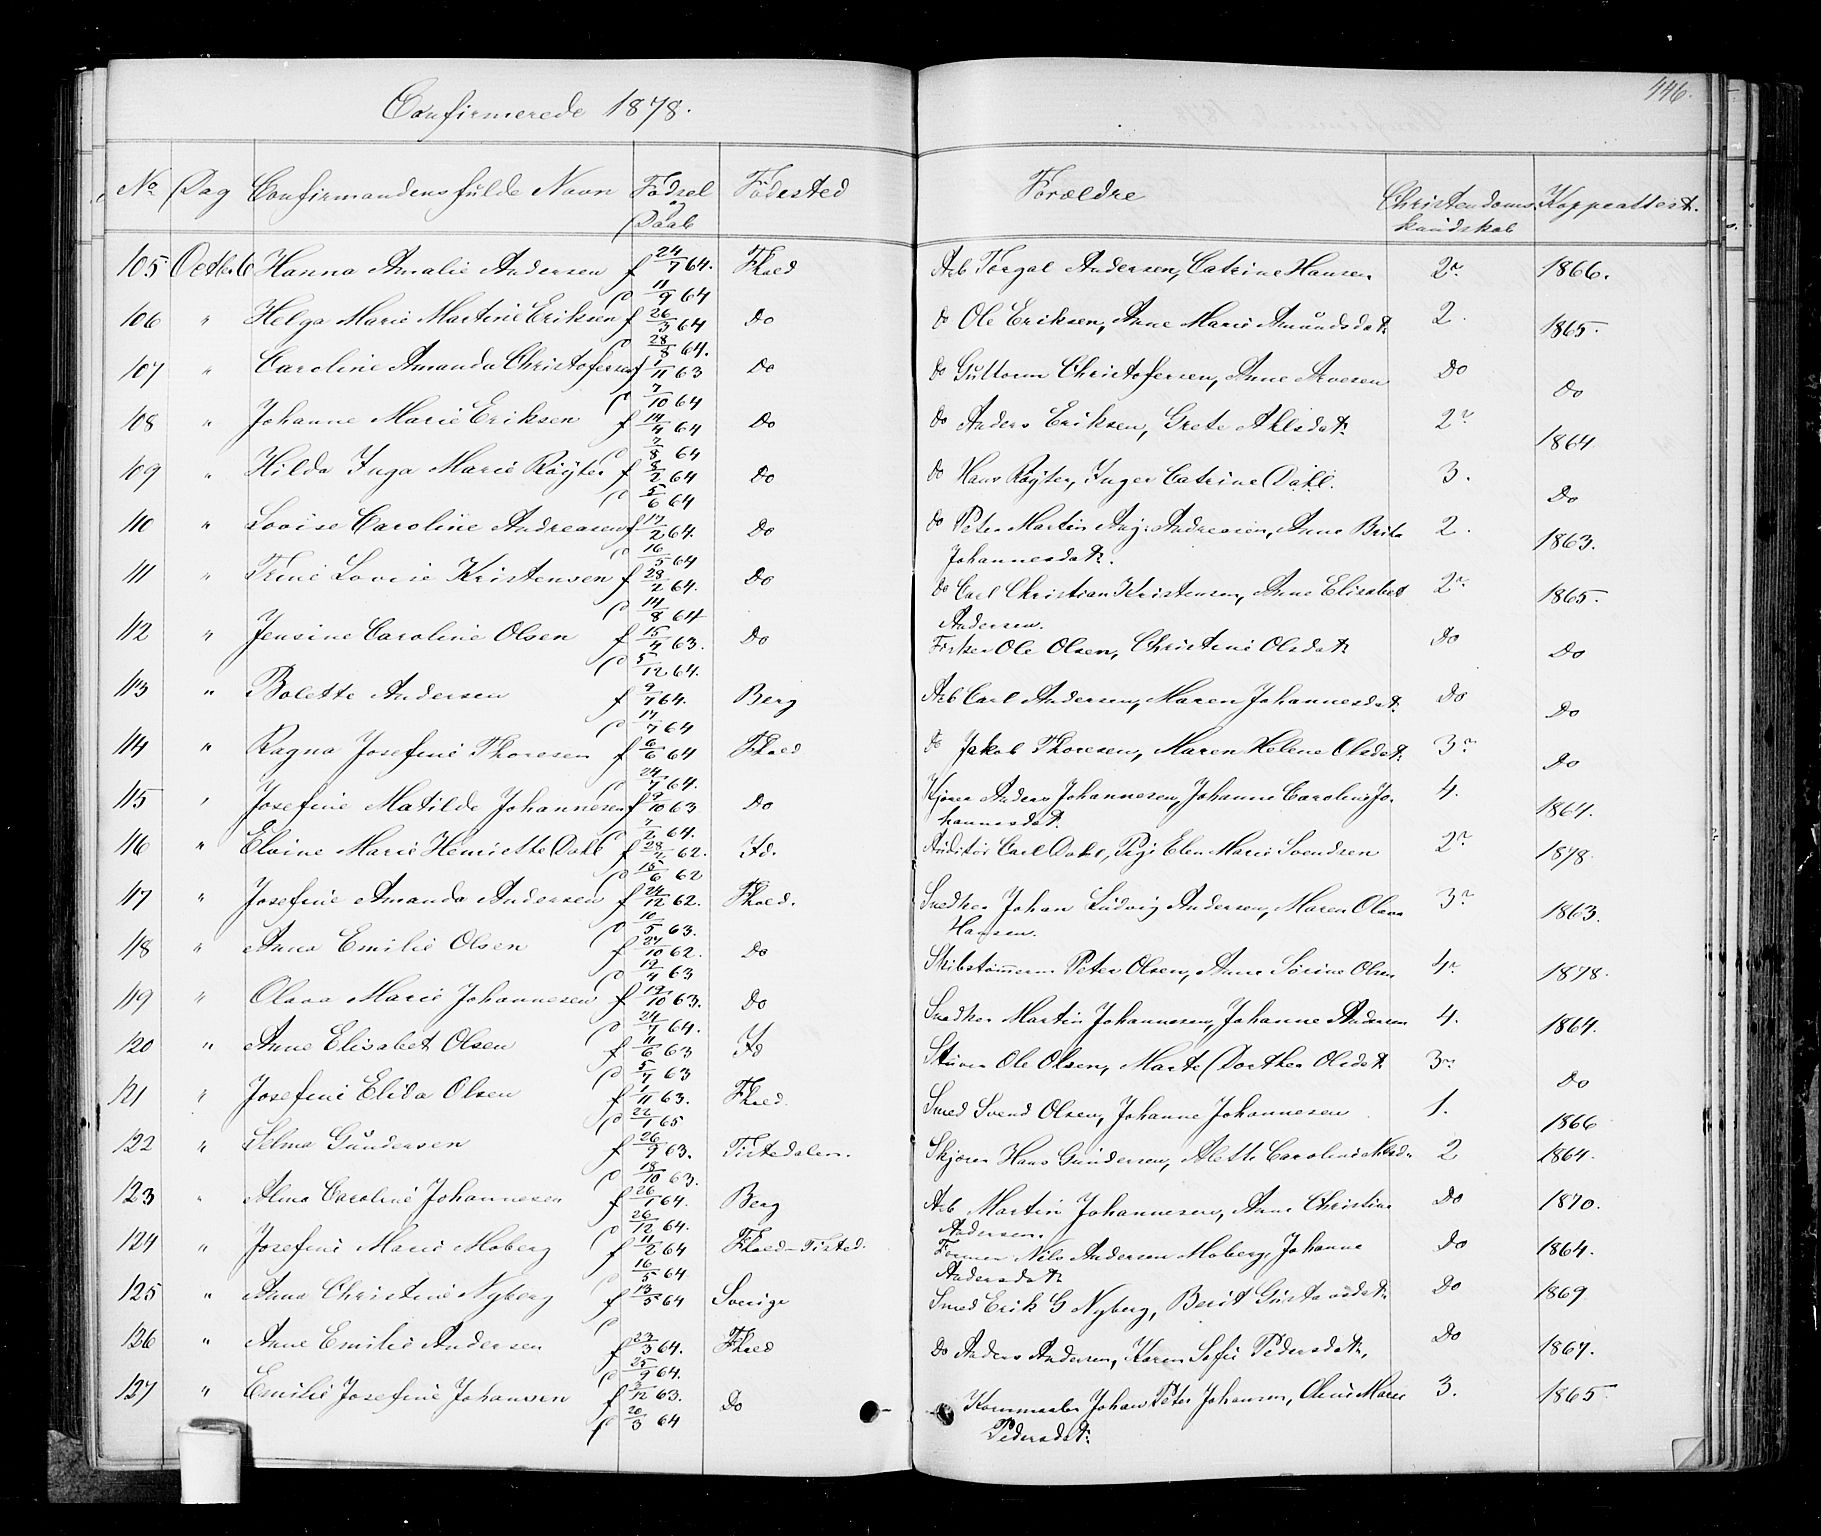 Confirmerede 1878.
446.
No Dag Confirmandens fulde Navn Fødsel og Daab Fødested Forældre Christendoms kundskab Koppeattest.
105. Octbr 6 Hanna Amalie Andersen f 24/7 64. Fhald Arb Torgal Andersen, Catrine Hansen 2 1866.
D 11/9 64
106 " Helga Marie Martine Eriksen f 26/3 64 Do do Ole Eriksen, Anne Marie Amundsdatr 2. 1865.
D 28/8 64.
107 " Caroline Amanda Christofersen f 1/11 63 Do do Guttorm Christofersen, Anne Do Do
D 7/10 64
108 " Johanne Marie Eriksen f 14/4 64 Do do Anders Eriksen, Grete 2 1864
D 7/8 64
109 " Hilda Inga Marie Røyter f 8/2 64 Do do Hans Røyter, Inger Catrine Dahl. 3. Do
D 5/6 64
110 " Lovise Caroline Andreasen f 17/2 64. Do do Peter Martin Andreasen, Anne Brita 2. 1863.
D 16/5 64 Johannesdatr.
111 " Trine Lovise Kristensen f 28/2 64. Do do Carl Christian Kristensen, Anne Elisabet 2 1865.
D 14/8 64 Andersen.
112 " Jensine Caroline Olsen f 15/4 63. Do Fisker Ole Olsen, Christine Olsdatr Do Do
D 5/12 64.
113 " Bolette Andersen f 9/4 64. Berg Arb Carl Andersen, Maren Johannesdatr Do Do
D 17/7 64
114 " Ragna Josefine Thoresen f 6/6 64 Fhald do Jakob Thoresen, Maren Helene Olsdatr 3 Do
D 24/7 64.
115 " Josefine Matilde Johannesen f 9/10 63 Do Kjører Anders Johannesen, Johanne Caroline Jo- 4. 1864.
D 7/2 64. hannesdatr.
116 " Elvine Marie Henriette Dahl f 28/4 62. Id. Auditør Carl Dahl, Pige Elen Marie Svendsen 2 1878
D 15/6 62
117 " Josefine Amanda Andersen f 24/12 62. Fhald. Snedker Johan Ludvig Andersen, Maren Olava 3 1863.
D 10/5 63. Hansen.
118 " Anna Emilie Olsen f 27/10 62. Do Skibstømmerm Peter Olsen, Anne Sørine Olsen 4 1878.
D 12/4 63
119 " Olava Marie Johannesen f 12/10 63. Do Snedker Martin Johannesen, Johanne Andersen 4. 1864.
D 24/7 64.
120 " Anne Elisabet Olsen f 11/6 63 Id Stuver Ole Olsen, Marte Dorthea Olsdatr 3 Do
D 5/7 63
121 " Josefine Elida Olsen f 1/11 63. Fhald. Smed Svend Olsen, Johanne Johannesen 1. 1866
D 22/1 65
122 " Selma Gundersen f 26/9 63. Tistedalen. Skjærer Hans Gundersen, Alette Caroline 2 1864.
D 18/10 63.
123 " Alma Caroline Johannesen f 26/1 64. Berg Arb Martin Johannesen, Anne Christine Do 1870.
D 26/12 64. Andersen.
124 " Josefine Marie Moberg f 11/2 64 Fhald-Tisted. Former Nils Andersen Moberg, Johanne Do 1864.
D 16/5 64 Andersdatr
125 " Anna Christine Nyberg f 13/5 64 Sverige Smed Erik G Nyberg, Berit Gustavsdatr Do 1869
D
126 " Anne Emilie Andersen f 23/3 64. Fhald Do Anders Andersen, Karen Sofie Pedersdatr, Do 1867.
D 25/9 64.
127 " Emilie Josefine Johansen f 3/12 63. Do Kornmaaler Johan Peter Johansen, Oline Marie 3. 1865.
D 20/3 64 Pedersdatr.